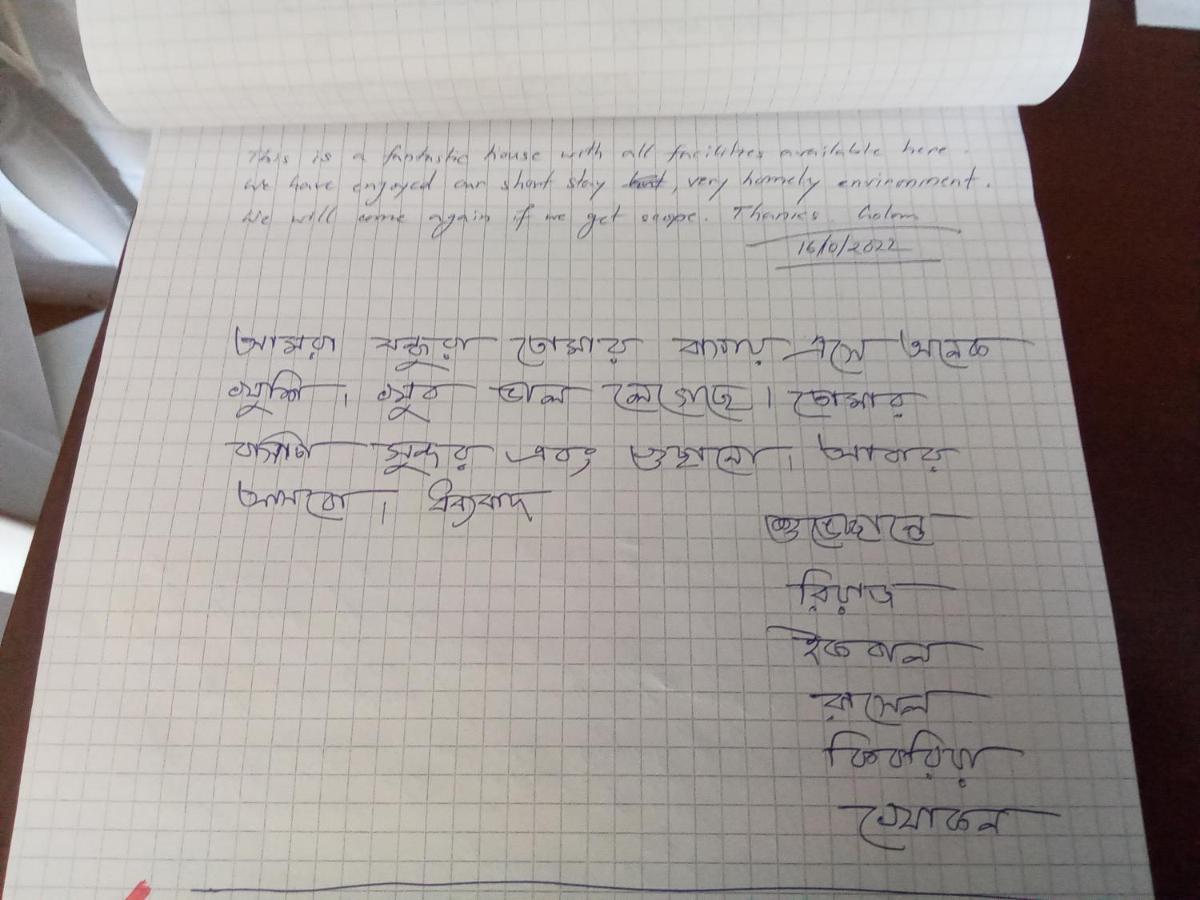 This is a fantastic house with all facilities available here.
We have enjoyed our short stay, very homely environment.
We will come again if we get scope. Thanks. Golam
16/0/2022
আমরা বন্ধুরা তোমার বাসায় এসে অনেক
খুশি। খুব ভাল লেগেছে। তোমার
বাসাটা সুন্দর এবং গুছানো। আবার
আসবো। ধন্যবাদ
শুভেচ্ছান্তে
রিয়াজ
ইকবাল
রাসেল
কিবরিয়া